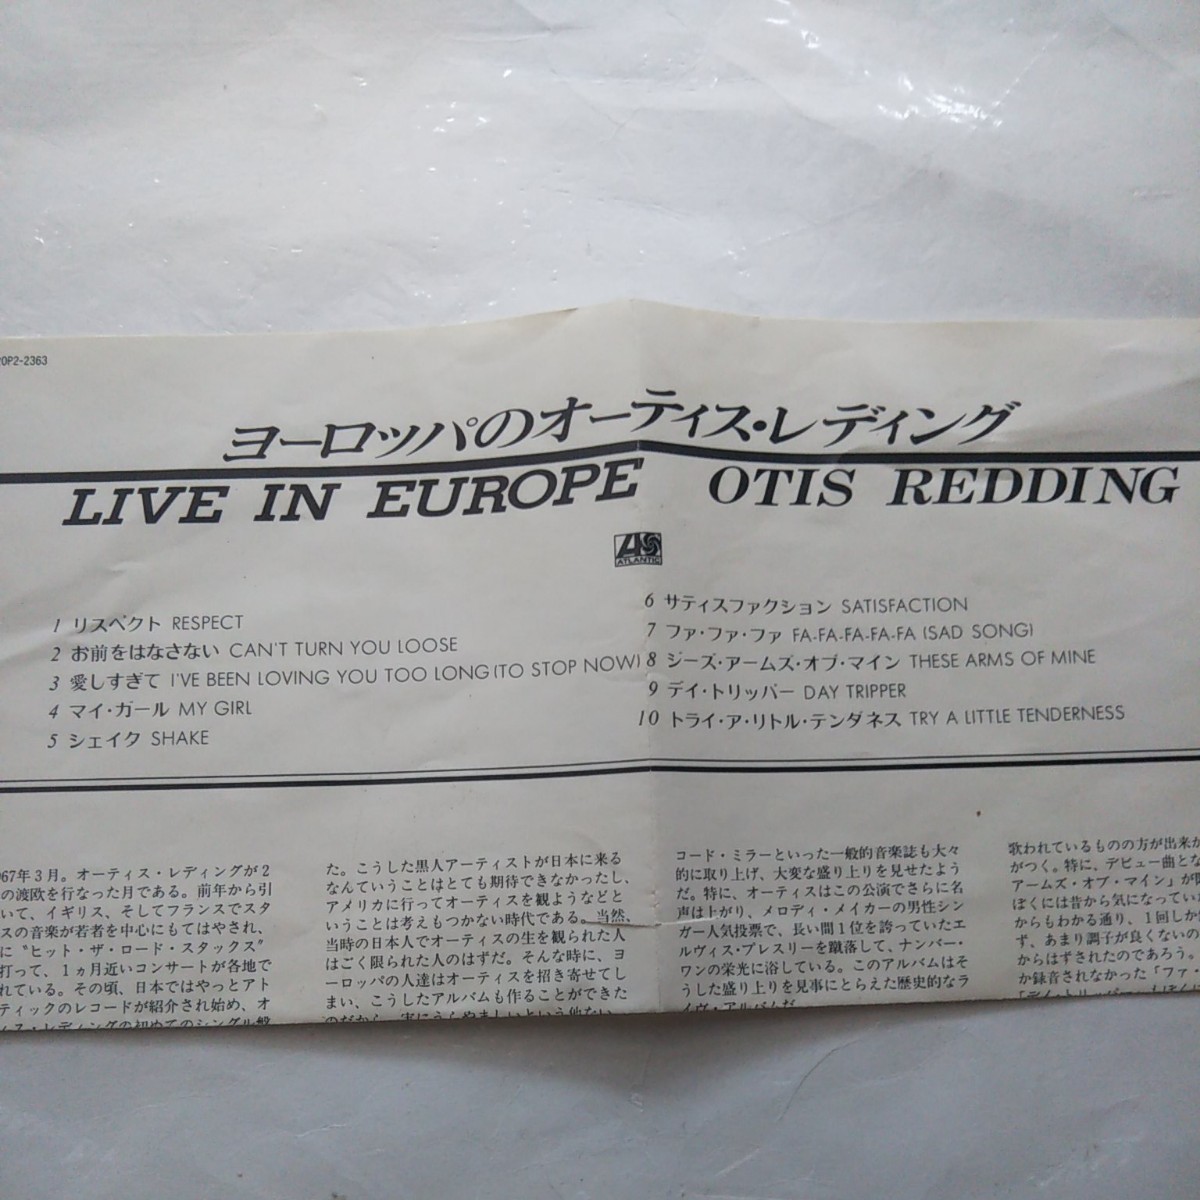 0P2-2363
ヨーロッパのオーティス・レディング
LIVE IN EUROPE OTIS REDDING
ATLANTIC
1 リスペクト RESPECT
2 お前をはなさない CAN'T TURN YOU LOOSE
3 愛しすぎて I'VE BEEN LOVING YOU TOO LONG(TO STOP NOW)
4 マイ・ガール MY GIRL
5 シェイク SHAKE
6 サティスファクション SATISFACTION
7 ファ・ファ・ファ FA-FA-FA-FA-FA (SAD SONG)
8 ジーズ・アームズ・オブ・マイン THESE ARMS OF MINE
9 デイ・トリッパー DAY TRIPPER
10 トライ・ア・リトル・テンダネス TRY A LITTLE TENDERNESS
967年3月。オーティス・レディングが2
の渡欧を行なった月である。前年から引
いて、イギリス、そしてフランスでスタ
スの音楽が若者を中心にもてはやされ、
に“ヒット・ザ・ロード・スタックス”
打って、1ヵ月近いコンサートが各地で
れている。その頃、日本ではやっとアト
ティックのレコードが紹介され始め、オ
ィス・レディングの初めてのシングル盤
た。こうした黒人アーティストが日本に来る
なんていうことはとても期待できなかったし、
アメリカに行ってオーティスを観ようなどと
いうことは考えもつかない時代である。当然、
当時の日本人でオーティスの生を観られた人
はごく限られた人のはずだ。そんな時に、ヨ
ーロッパの人達はオーティスを招き寄せてし
まい、こうしたアルバムも作ることができた
のだから、実にうらやましいという他ない。
コード・ミラーといった一般的音楽誌も大々
的に取り上げ、大変な盛り上りを見せたよう
だ。特に、オーティスはこの公演でさらに名
声は上がり、メロディ・メイカーの男性シン
ガー人気投票で、長い間1位を誇っていたエ
ルヴィス・プレスリーを蹴落して、ナンバー・
ワンの栄光に浴している。このアルバムはそ
うした盛り上りを見事にとらえた歴史的なラ
イヴ・アルバムだ
歌われているものの方が出来が
がつく。特に、デビュー曲とな
アームズ・オブ・マイン”が
ぼくには昔から気になっていた
からもわかる通り、1回しか
ず、あまり調子が良くないの
からはずされたのであろう。
か録音されなかった「ファ・
「デイ・トリッパー